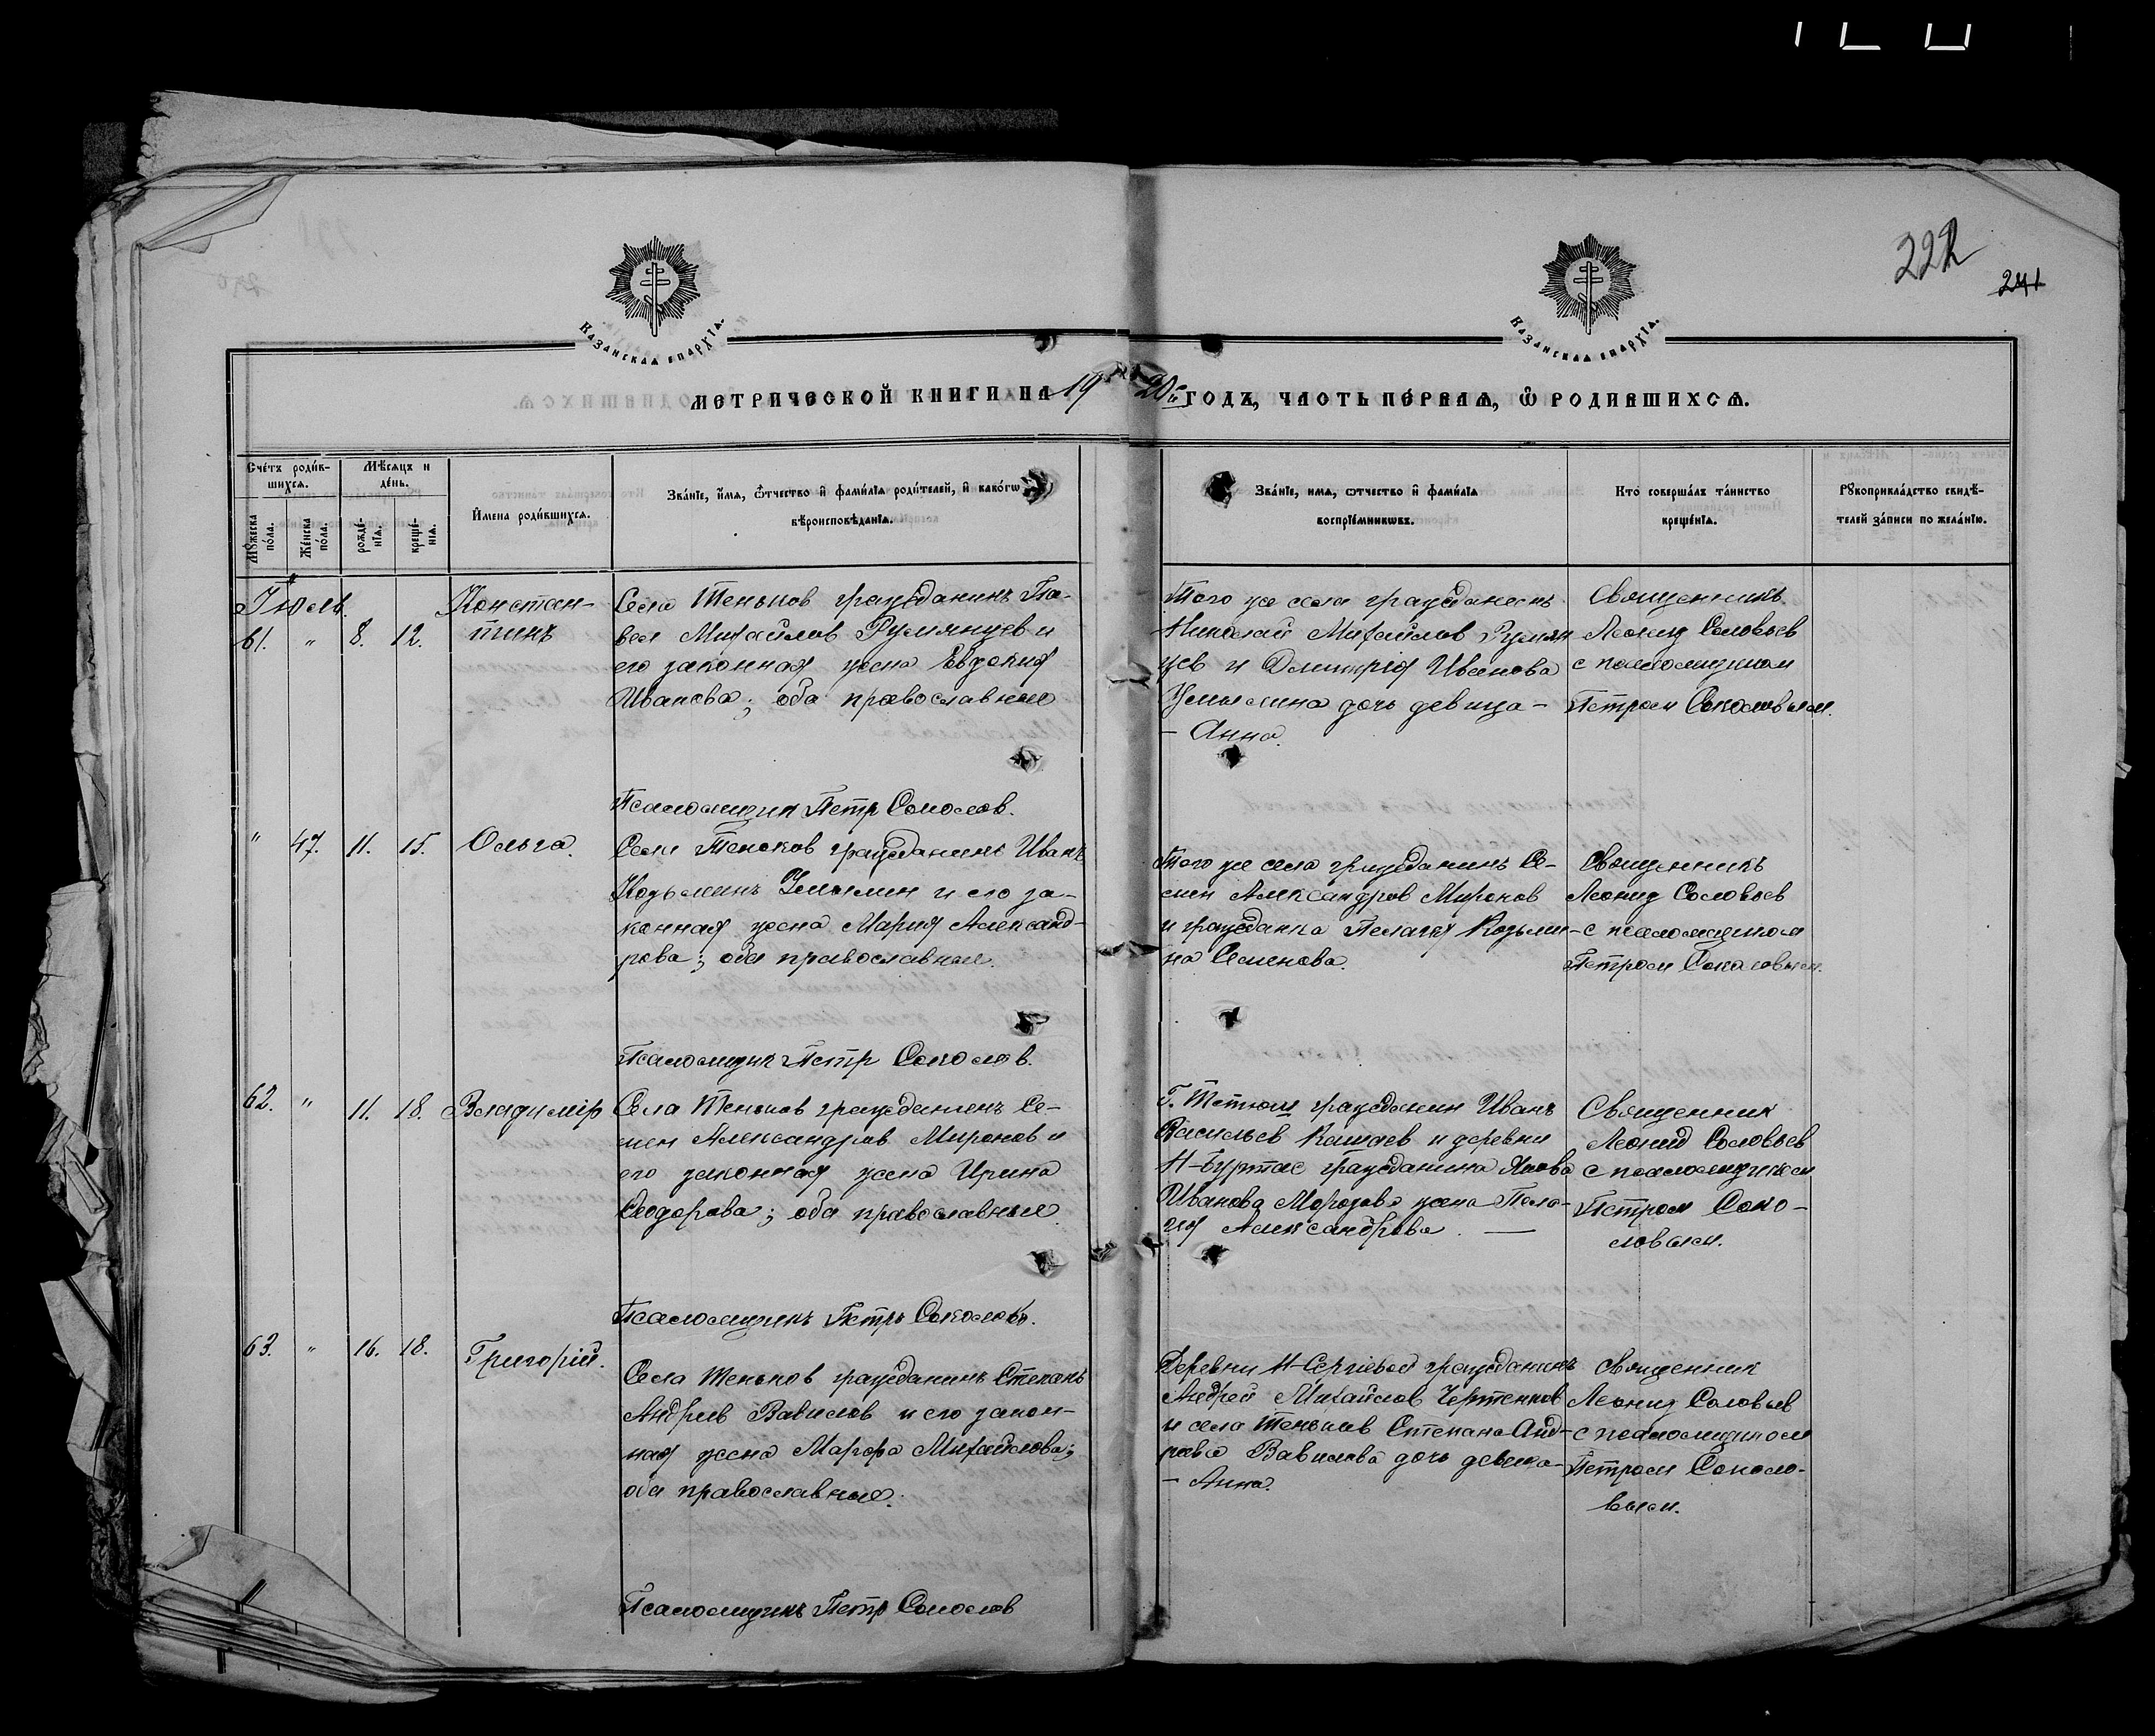 222
241
Казанская епархія.
Казанская епархія.
МЕТРИЧЕСКОЙ КНИГИ НА 19
20й ГОДЪ, ЧАСТЬ ПЕРВАЯ, Ѡ РОДИВШИХСѦ.
Счетъ родившихся.
Мѣсяцъ и день.
Имена родившихся.
Званіе, имя, ѿчество и фамилія родителей, и какогѡ
вѣроисповѣданія.
Званіе, имя, ѡтчество и фамилія
воспріемникѡвъ.
Кто совершалъ таинство
крещенія.
Рꙋкоприкладство свидѣ-
телей записи по желанію.
Мꙋжеска пола.
Женска пола.
рожде-
нія.
креще-
нія.
Іюль.
61. " 8. 12.
Констан-
тинъ
Села Теньков гражданинъ Па-
вел Михайлов Румянцев и
его законная жена Евдокия
Иванова; оба православные
Псаломщик Петр Соколов.
Того же села гражданинъ
Николай Михайлов Румян
цев и Димитрія Иванова
дочь девица -
- Анна.
Священникъ
Леонид Соловьев
с псаломщиком
Петром Соколовым.
" 47. 11. 15.
Ольга.
Села Теньков гражданинъ Иванъ
Козьминъ и его за-
конная жена Мария Александ-
рова; оба православные.
Псаломщик Петр Соколов.
Того же села гражданинъ Се-
мен Александров Миронов
и гражданка Пелагея Козьми-
на Семенова.
Священникъ
Леонид Соловьев
с псаломщиком
Петром Соколовым.
62. " 11. 18.
Владиміръ
Села Теньков гражданинъ Се-
мен Александров Миронов и
его законная жена Ирина
Феодорова; оба православные.
Псаломщикъ Петръ Соколовъ.
Г. Тетюш гражданин Иванъ
Васильев и деревни
Н-Буртас гражданина Якова
Иванова Морозова жена Пела-
гия Александрова. —
Священник
Леонид Соловьев
с псаломщиком
Петром Соко-
ловым.
63. " 16. 18.
Григорій.
Села Теньков гражданинъ Степанъ
Андреев Вавилов и его закон-
ная жена Марфа Михайлова;
оба православные.
Псаломщикъ Петр Соколов
Деревни Н-Сергіевой гражданинъ
Андрей Михайлов Чертенков
и села Теньков Степана Анд-
реева Вавилова дочь девица -
- Анна.
Священник
Леонид Соловьев
с псаломщиком
Петром Соколо-
вым.